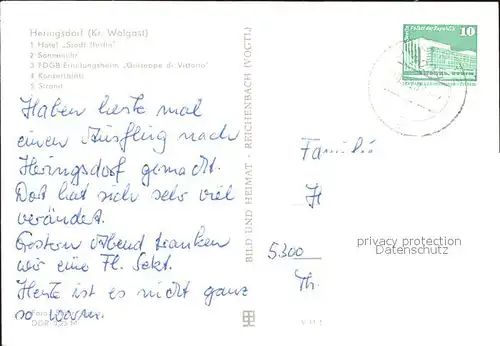 Heringsdorf (Kr. Wolgast)
1 Hotel „Stadt Berlin"
2 Sonnenuhr
3 FDGB-Erholungsheim „Guiseppe di Vittorio"
4 Konzertplatz
5 Strand
Haben heute mal
einen Ausflug nach
Heringsdorf gemacht.
Dort hat sich sehr viel
verändert.
Gestern Abend tranken
wir eine Fl. Sekt.
Heute ist es nicht ganz
so warm.
BILD UND HEIMAT · REICHENBACH (VOGTL)
Palast der Republik 10
Familie
H
5300
Th.
privacy protection
Datenschutz
V 11